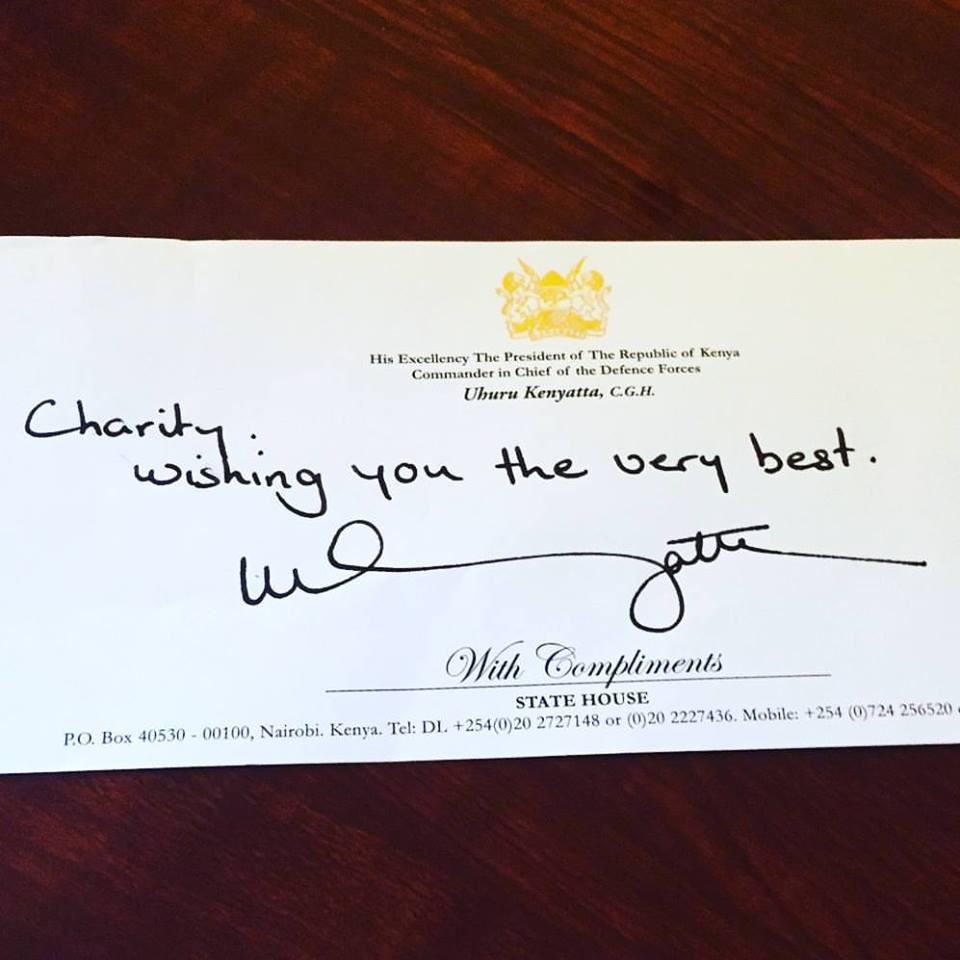 His Excellency The President of The Republic of Kenya
Commander in Chief of the Defence Forces
Uhuru Kenyatta, C.G.H.
Charity.
wishing you the very best.
With Compliments
STATE HOUSE
P.O. Box 40530 - 00100, Nairobi. Kenya. Tel: DL +254(0)20 2727148 or (0)20 2227436. Mobile: +254 (0)724 256520